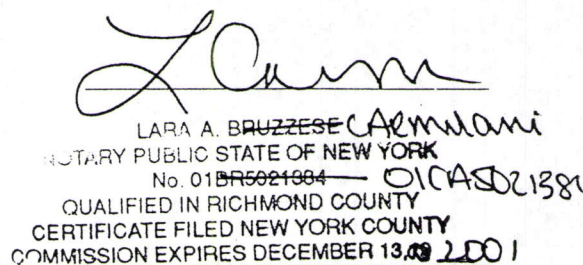 LARA A. BRUZZESE CARMILANI
NOTARY PUBLIC STATE OF NEW YORK
No. 01BR5021384 01CA5021384
QUALIFIED IN RICHMOND COUNTY
CERTIFICATE FILED NEW YORK COUNTY
COMMISSION EXPIRES DECEMBER 13, 2001